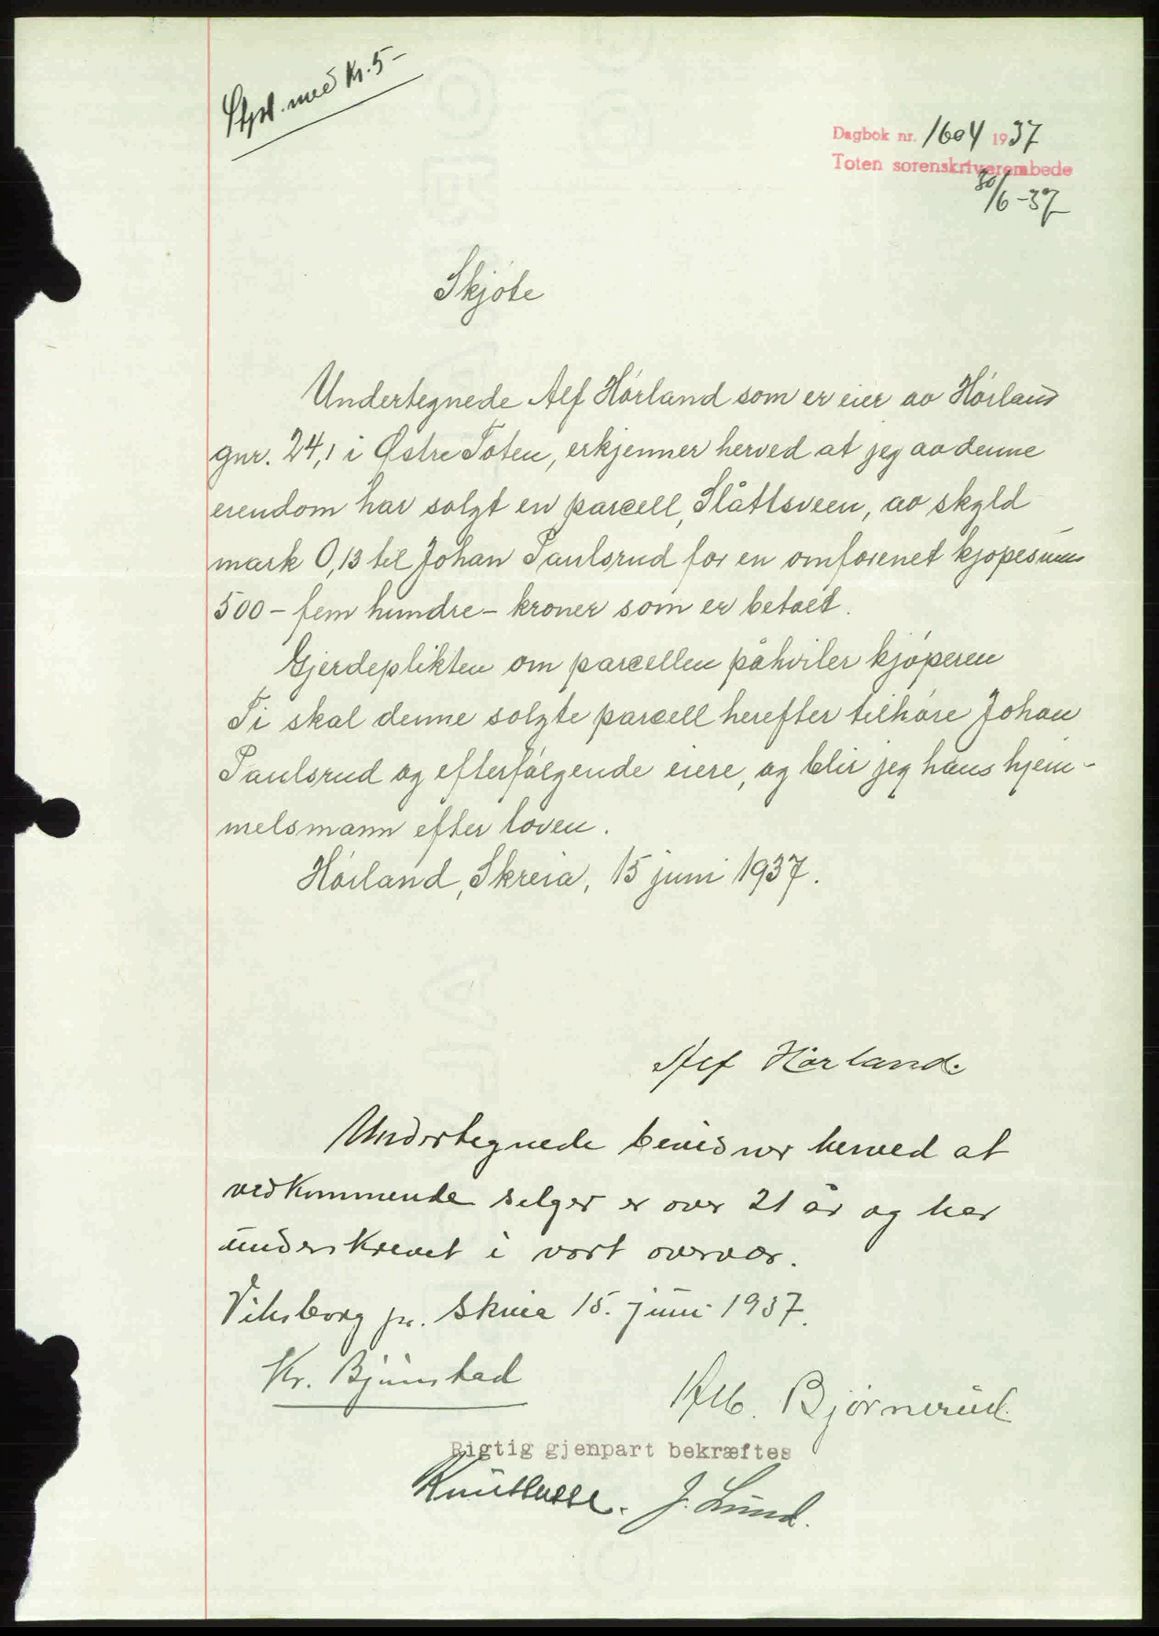 Stpl. med Kr. 5-
Dagbok nr. 1604 1937
Toten sorenskriverembede
30/6-37
Skjøte
Undertegnede Alf Hørland som er eier av Hørland
gnr. 24,1 i Østre Toten, erkjenner herved at jeg av denne
eiendom har solgt en parcell, Slåttsveen, av skyld
mark 0,13 til Johan Paulsrud for en omforenet kjøpesum
500 - fem hundre - kroner som er betalt.
Gjerdeplikten om parcellen påhviler kjøperen
Ti skal denne solgte parcell herefter tilhøre Johan
Paulsrud og efterfølgende eiere, og blir jeg hans hjem-
melsmann efter loven.
Hørland, Skreia, 15 juni 1937.
Alf Hørland.
Undertegnede bevidner herved at
vedkommende selger er over 21 år og har
underskrevet i vort overvær.
Viksborg pr. Skreia 15. juni 1937.
Kr. Bjørnstad
Bjørnerud.
Rigtig gjenpart bekræftes
J. Lund.